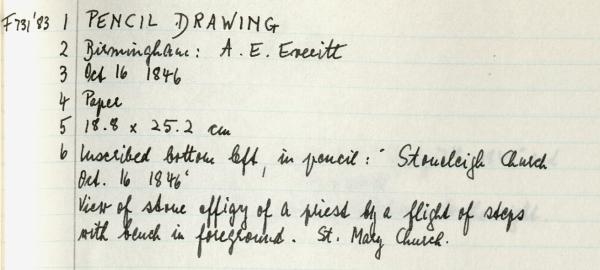 F731'83 1 PENCIL DRAWING
2 Birmingham: A. E. Everitt
3 Oct 16 1846
4 Paper
5 18.8 x 25.2 cm
6 Inscribed bottom left, in pencil: ' Stoneleigh Church
Oct. 16 1846'
View of stone effigy of a priest by a flight of steps
with bench in foreground. St. Mary Church.